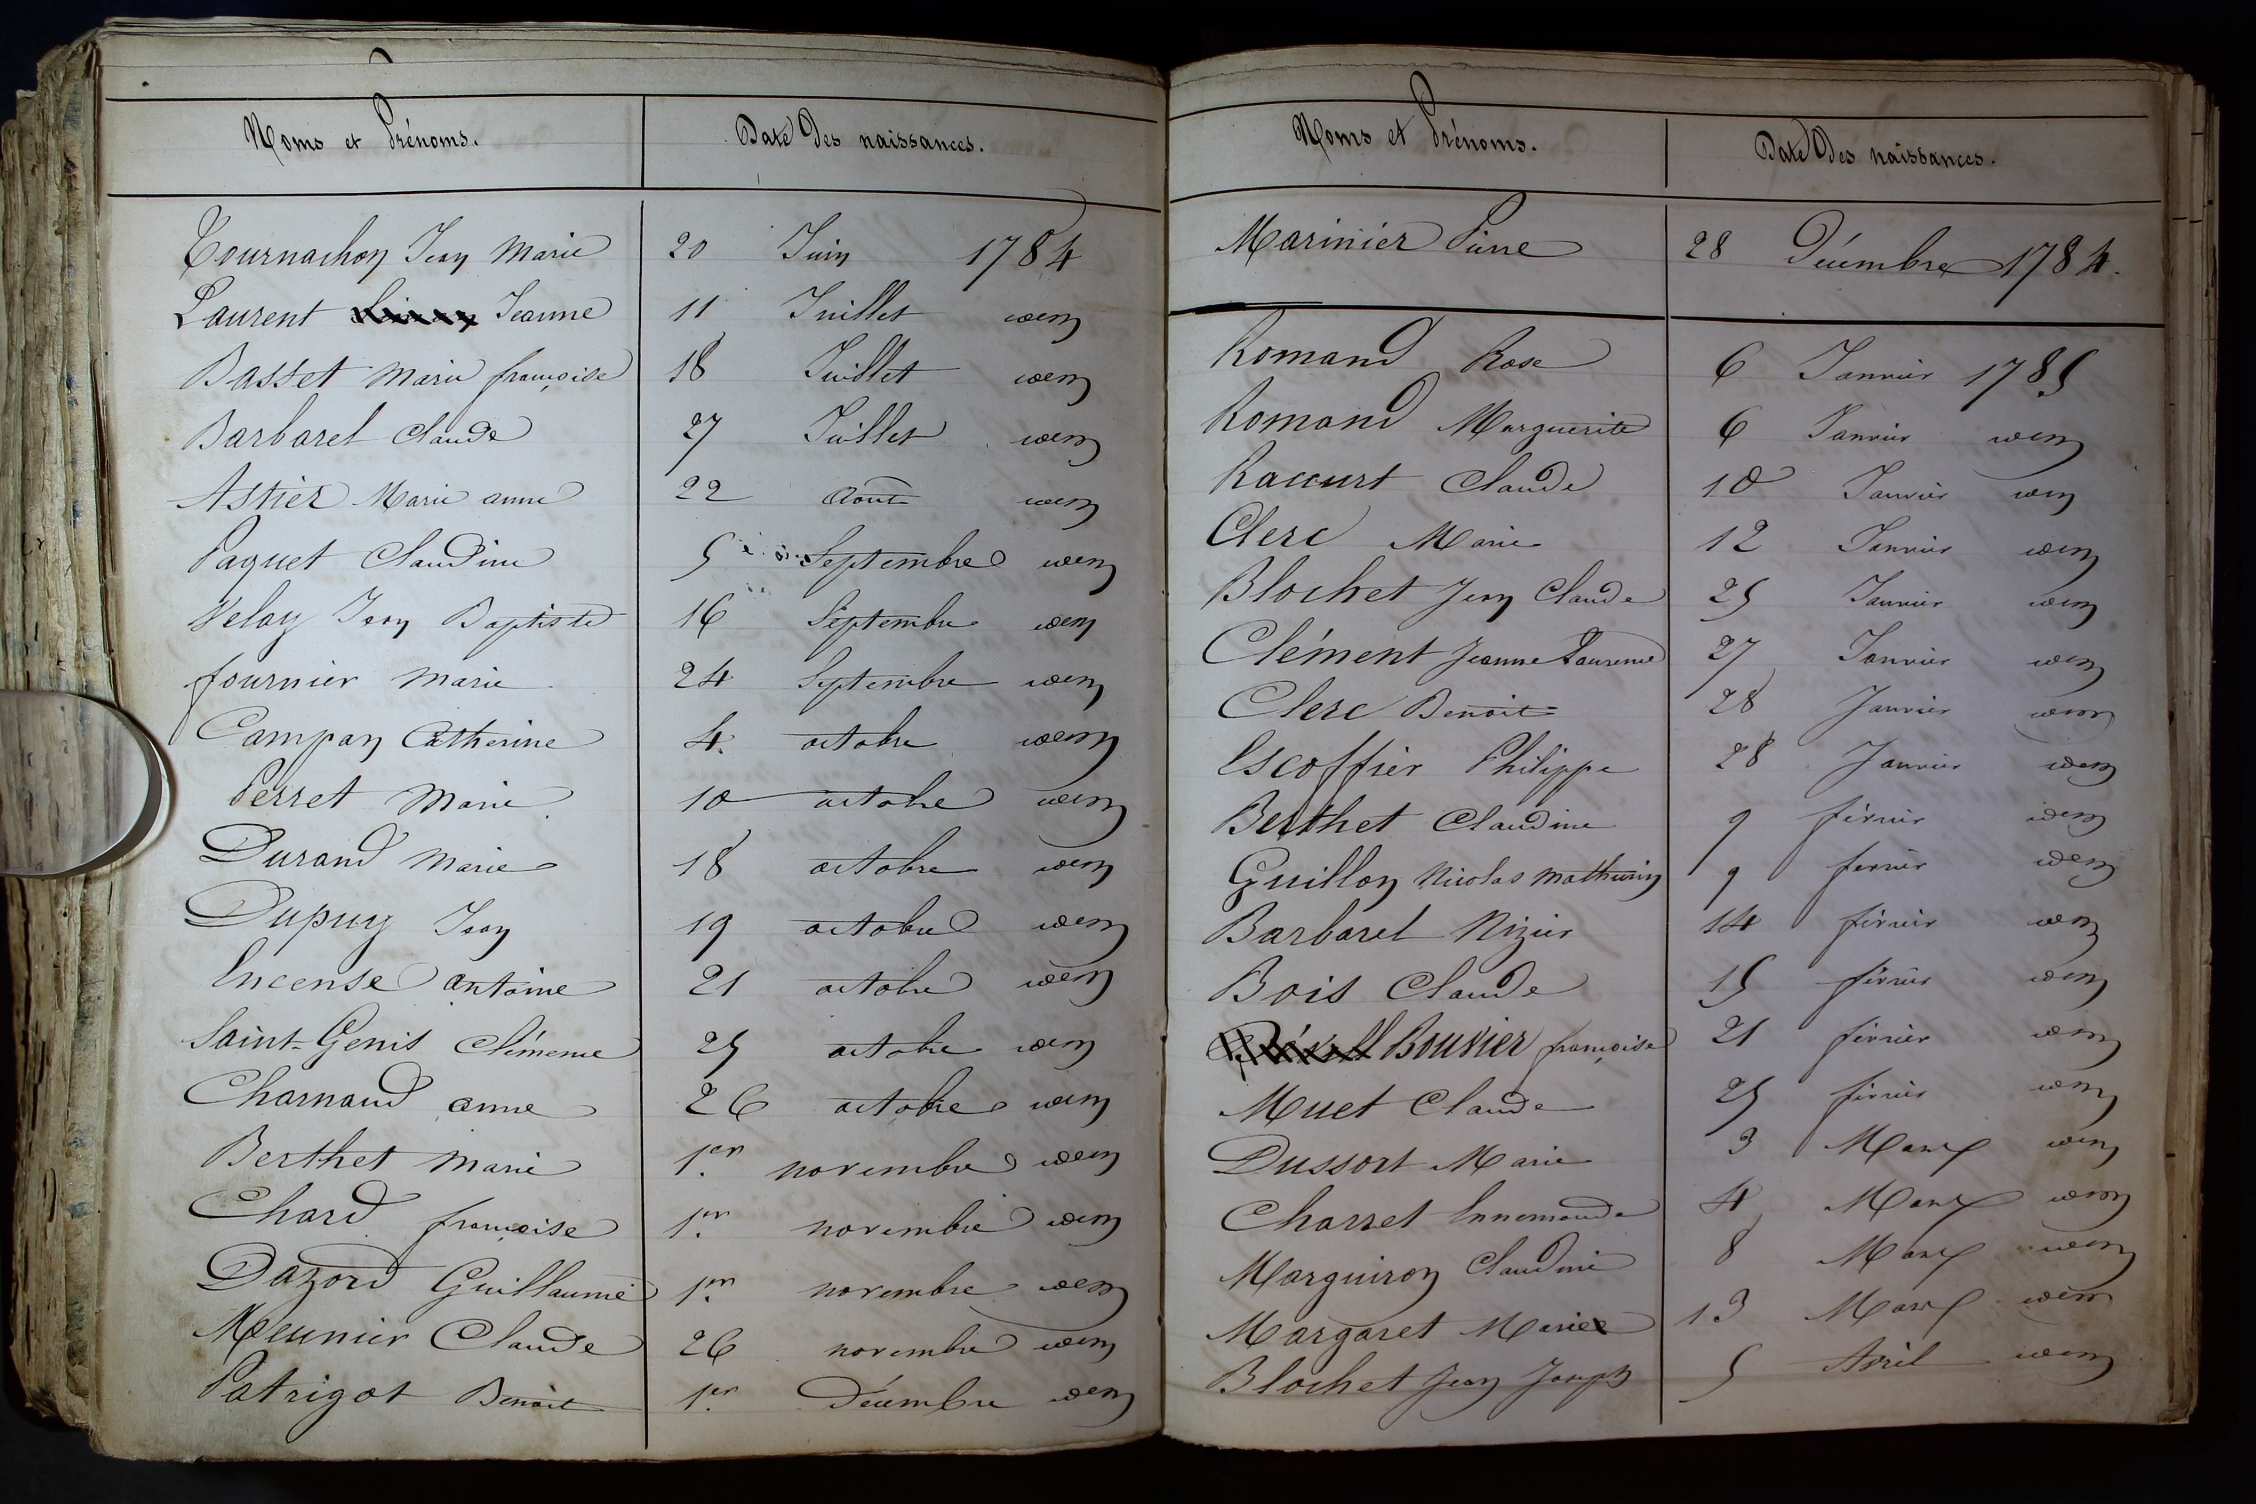 Noms et Prénoms. Date des naissances.
Tournachon Jean Marie 20 Juin 1784
Laurent Jeanne 11 Juillet idem
Basset Marie françoise 18 Juillet idem
Barbaret Claude 27 Juillet idem
Astier Marie anne 22 Aout idem
Paquet Claudine 5 Septembre idem
Velay Jean Baptiste 16 Septembre idem
fournier Marie 24 Septembre idem
Campan Catherine 4 octobre idem
Perret Marie 10 octobre idem
Durand Marie 18 octobre idem
Dupuy Jean 19 octobre idem
Encense antoine 21 octobre idem
Saint-Genis Clémence 25 octobre idem
Charnaud anne 26 octobre idem
Berthet Marie 1er novembre idem
Chard françoise 1er novembre idem
Dazord Guillaume 1er novembre idem
Meunier Claude 26 novembre idem
Patrigot Benoit 1er Décembre idem
Noms et Prénoms. Date des naissances.
Marinier Pierre 28 Décembre 1784.
Romand Rose 6 Janvier 1785
Romand Marguerite 6 Janvier idem
Raccurt Claude 10 Janvier idem
Clerc Marie 12 Janvier idem
Blochet Jean Claude 25 Janvier idem
Clément Jeanne Laurence 27 Janvier idem
Clerc Benoit 28 Janvier idem
Escoffier Philippe 28 Janvier idem
Berthet Claudine 9 février idem
Guillon Nicolas Mathurin 9 février idem
Barbaret Nizier 14 février idem
Bois Claude 15 février idem
Bouvier françoise 21 février idem
Muet Claude 25 février idem
Dussort Marie 3 Mars idem
Charret Ennemonde 4 Mars idem
Marguiron Claudine 8 Mars idem
Margaret Marie 13 Mars idem
Blochet Jean Joseph 5 Avril idem